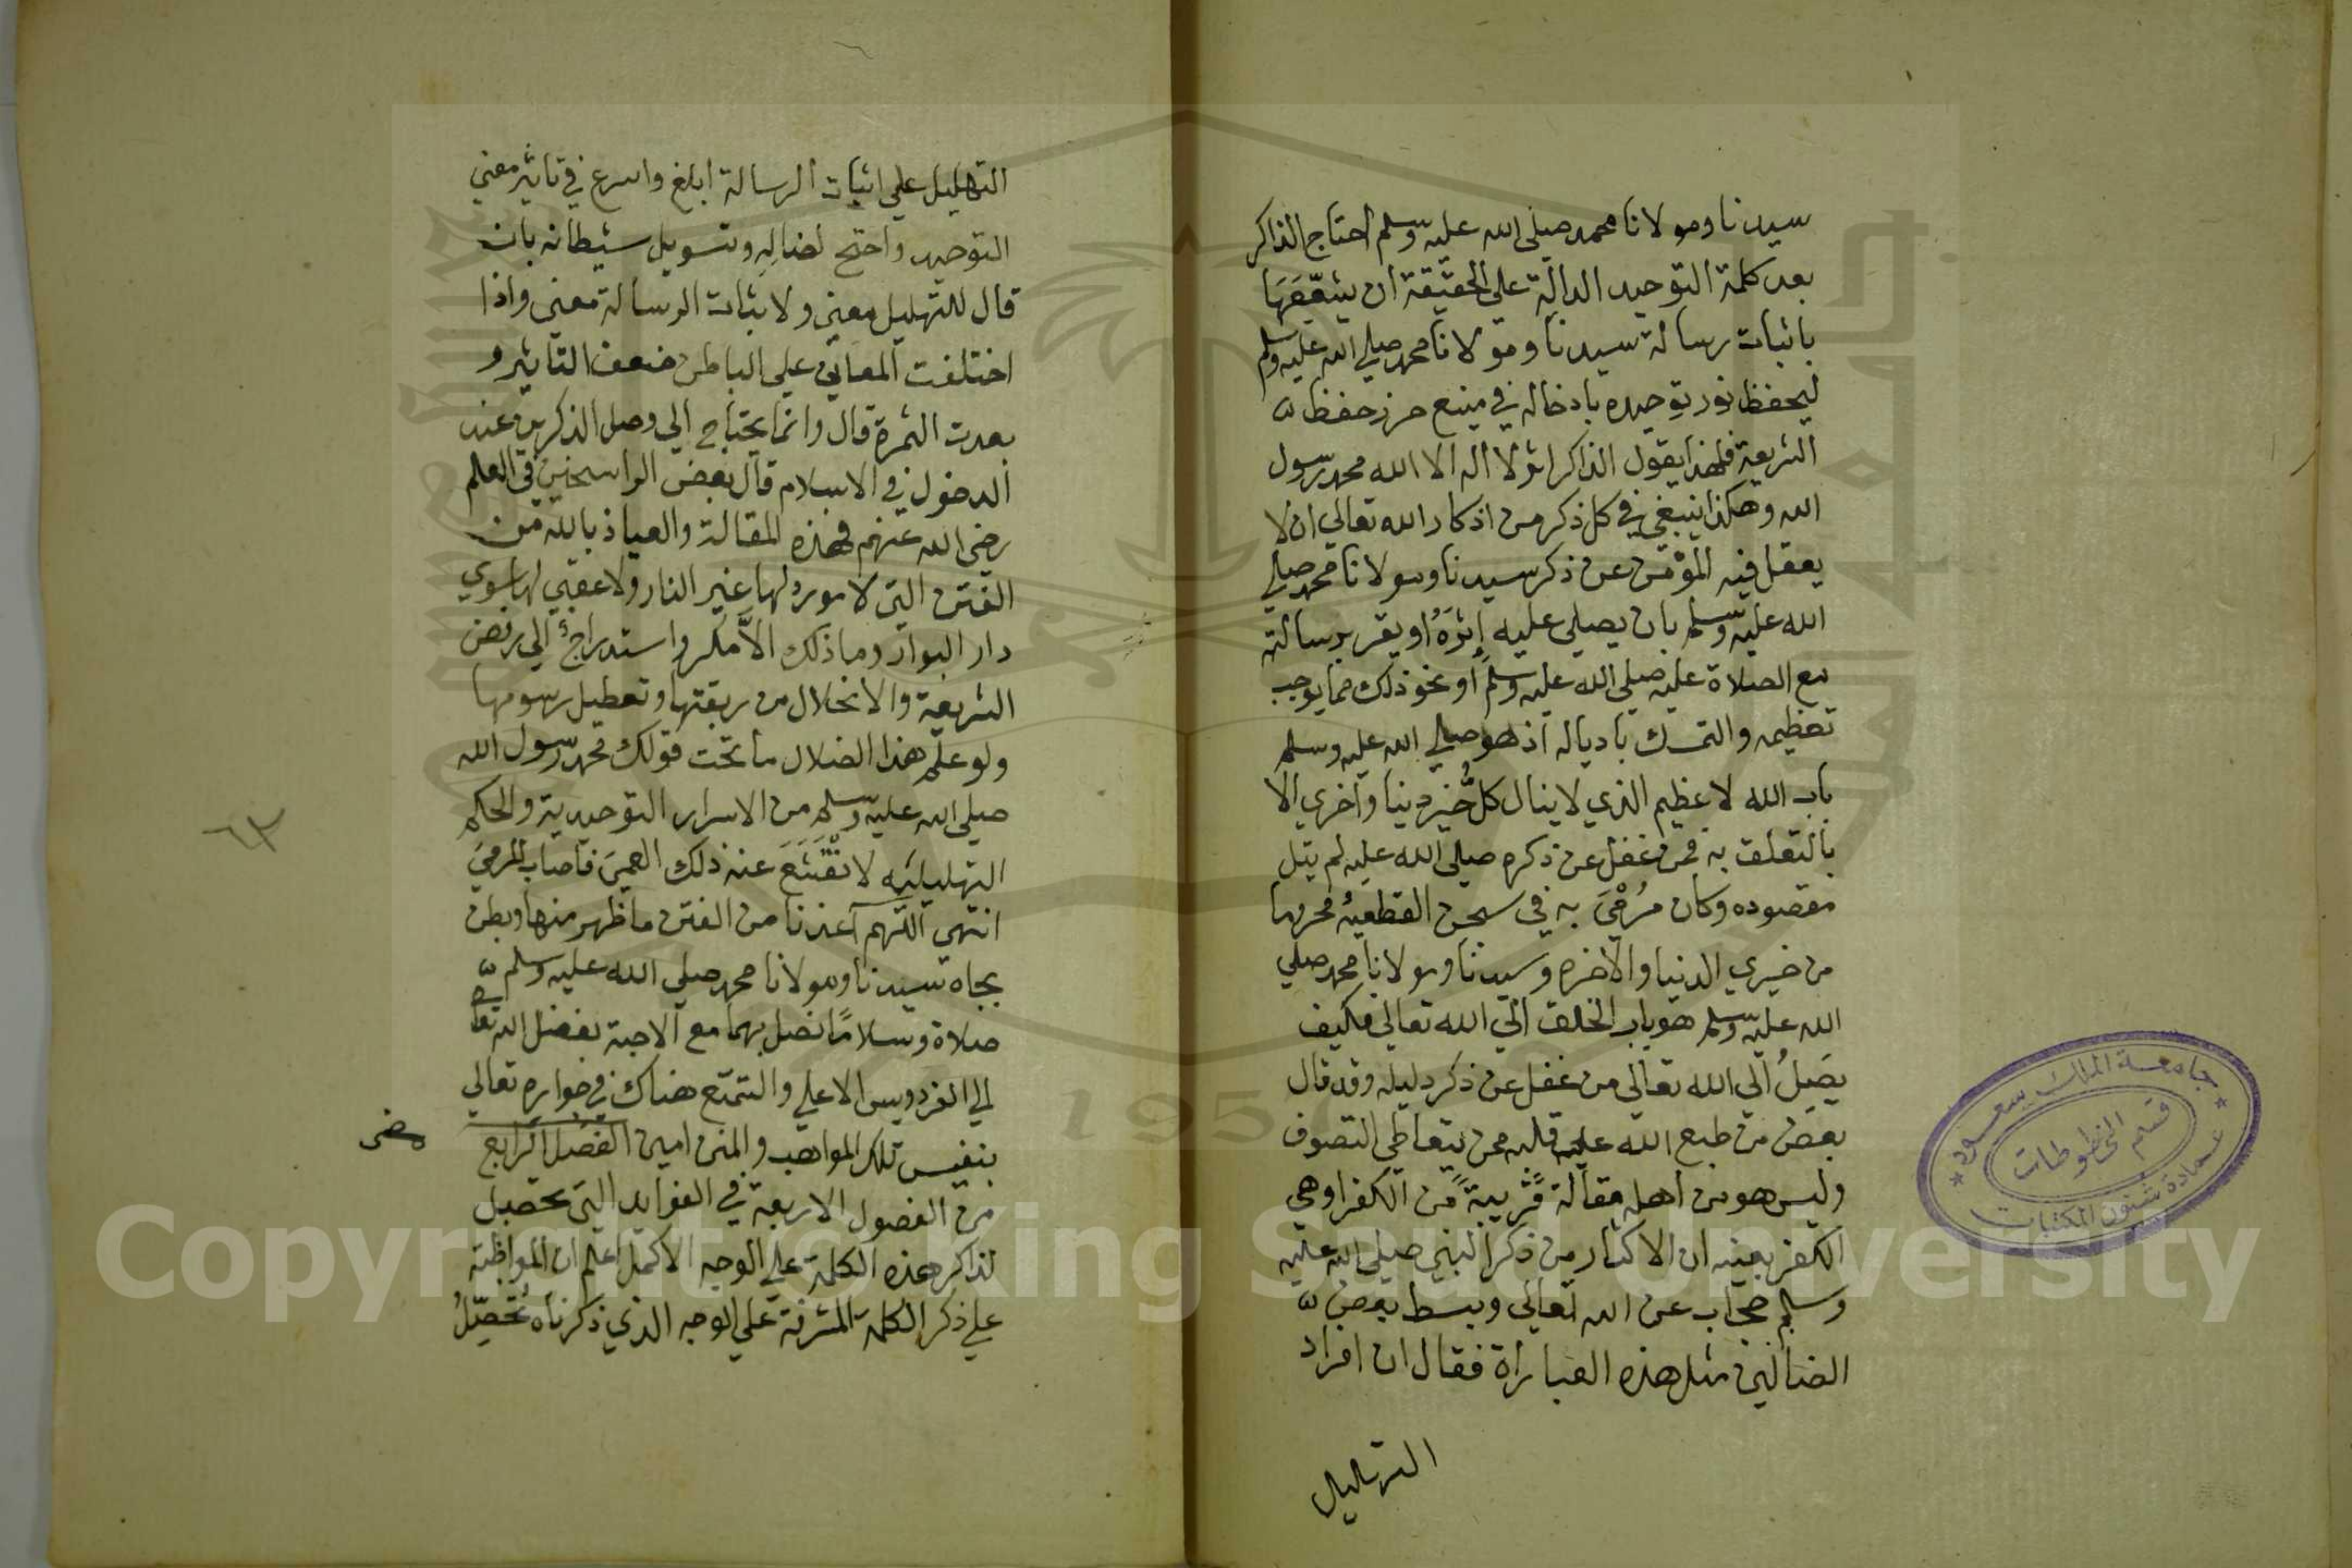 سيدنا ومولانا محمد صلى الله عليه وسلم احتاج الذاكر
بعد كلمة التوحيد الدالة علي الحقيقة ان يشفعها
باثبات رسالة سيدنا ومولانا محمد صلي الله عليه وسلم
ليحفظ نور توحيده بادخاله في منيع حرز حفظ
الشريعة فلهذا يقول الذاكر اثر لا اله الا الله محمد رسول
الله وهكذا ينبغي في كل ذكر من اذكار الله تعالي ان لا
يغفل فيه المؤمن عن ذكر سيدنا ومولانا محمد صلي
الله عليه وسلم بان يصلي عليه إثرَهُ او يقر برسالته
مع الصلاة عليه صلي الله عليه وسلم او نحو ذلك مما يوجب
تعظيمه والتمسك باذياله اذ هو صلي الله عليه وسلم
باب الله لاعظيم الذي لا ينال كل خير دينا واخري الا
بالتعلق به فمن غفل عن ذكره صلى الله عليه لم ينل
مقصوده وكان مُرْمَىً به في سجن القطعية محروما
من خيري الدنيا والاخره وسيدنا ومولانا محمد صلي
الله عليه وسلم هو باب الخلق الي الله تعالي فكيف
يصَلُ الي الله تعالي من غفل عن ذكر دليله وقد قال
بعض من طبع الله عليه قلبه ممن يتعاطي التصوف
وليس هو من اهله مقالة قريبة من الكفر او هي
الكفر بعينه ان الاكثار من ذكر النبي صلى الله عليه
وسلم حجاب عن الله تعالي وبسط بعض
الضالين مثل هذه العباراة فقال ان افراد
التهليل
التهليل علي اثبات الرسالة ابلغ واسرع في تاثير معني
التوحيد واحتج لضاله وتسويل شيطانه بان
قال للتهليل معني ولاثبات الرسالة معني واذا
اختلفت المعاني علي الباطن ضعف التاثير و
بعدت الثمرة قال وانما يحتاج الي وصل الذكرين عند
الدخول في الاسلام قال بعض الراسخين في العلم
رضي الله عنهم فهذه المقالة والعياذ بالله من
الفتن التي لا مورد لها غير النار ولا عقبي لها سوي
دار البوار وما ذلك الا مكر واستدراج الي رفض
الشريعة والانحلال من ربقتها وتعطيل رسومها
ولو علم هذا الضلال ما تحت قولك محمد رسول الله
صلي الله عليه وسلم من الاسرار التوحيدية والحكم
التهليليه لانقشع عنه ذلك العمي فاصاب المرمي
انتهي اللهم اعذنا من الفتن ما ظهر منها وبطن
بجاه سيدنا ومولانا محمد صلي الله عليه وسلم
صلاة وسلامًا نصل بهما مع الاحبة بفضل الله تعا
الي الفردويس الاعلي والتمتع هناك في جواره تعالي
بنفيس تلك المواهب والمنن امين الفصل الرابع
من الفصول الاربعة في الفوايد التي تحصل
لذاكر هذه الكلمة علي الوجه الاكمل اعلم ان المواظبة
علي ذكر الكلمة المشرفة علي الوجه الذي ذكرناه تُحَصِّلُ
٦٣
جامعة الملك سعود
قسم المخطوطات
عمادة شئون المكتبات
1957
Copyright © King Saud University